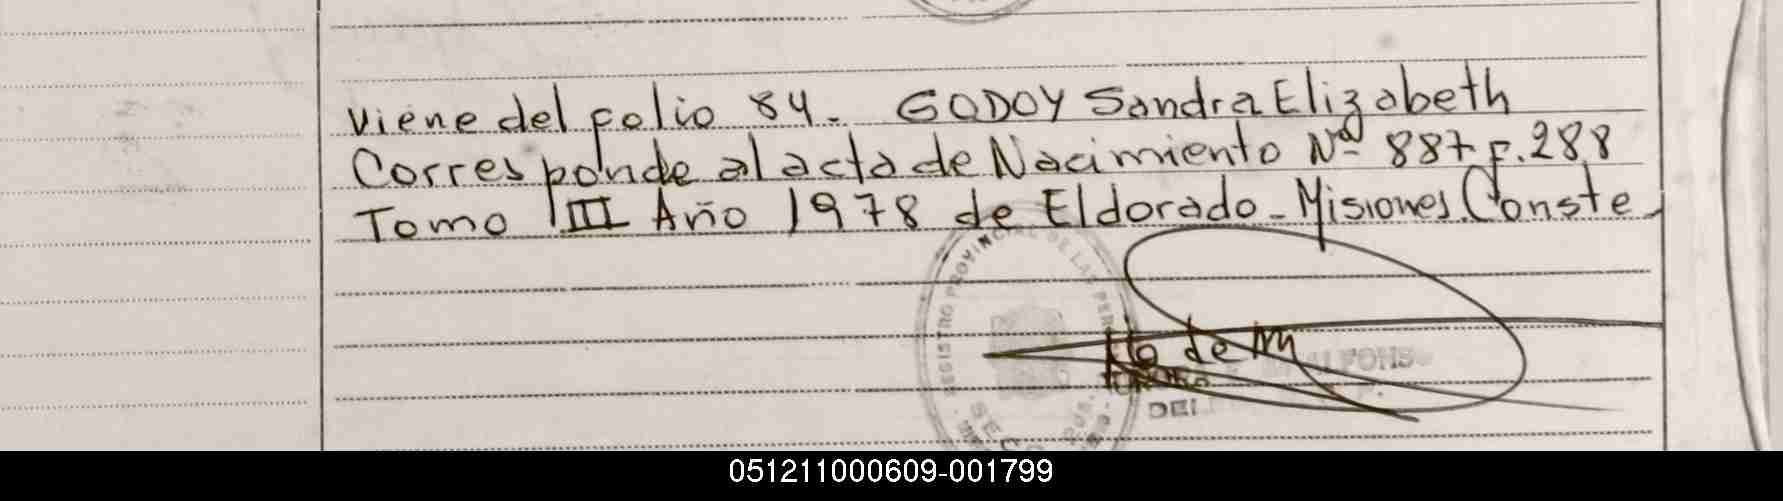 viene del folio 84. GODOY Sandra Elizabeth
Corresponde al acta de Nacimiento Nº 887 F. 288
Tomo III Año 1978 de Eldorado - Misiones. Conste
REGISTRO PROVINCIAL DE LAS PER
de
051211000609-001799